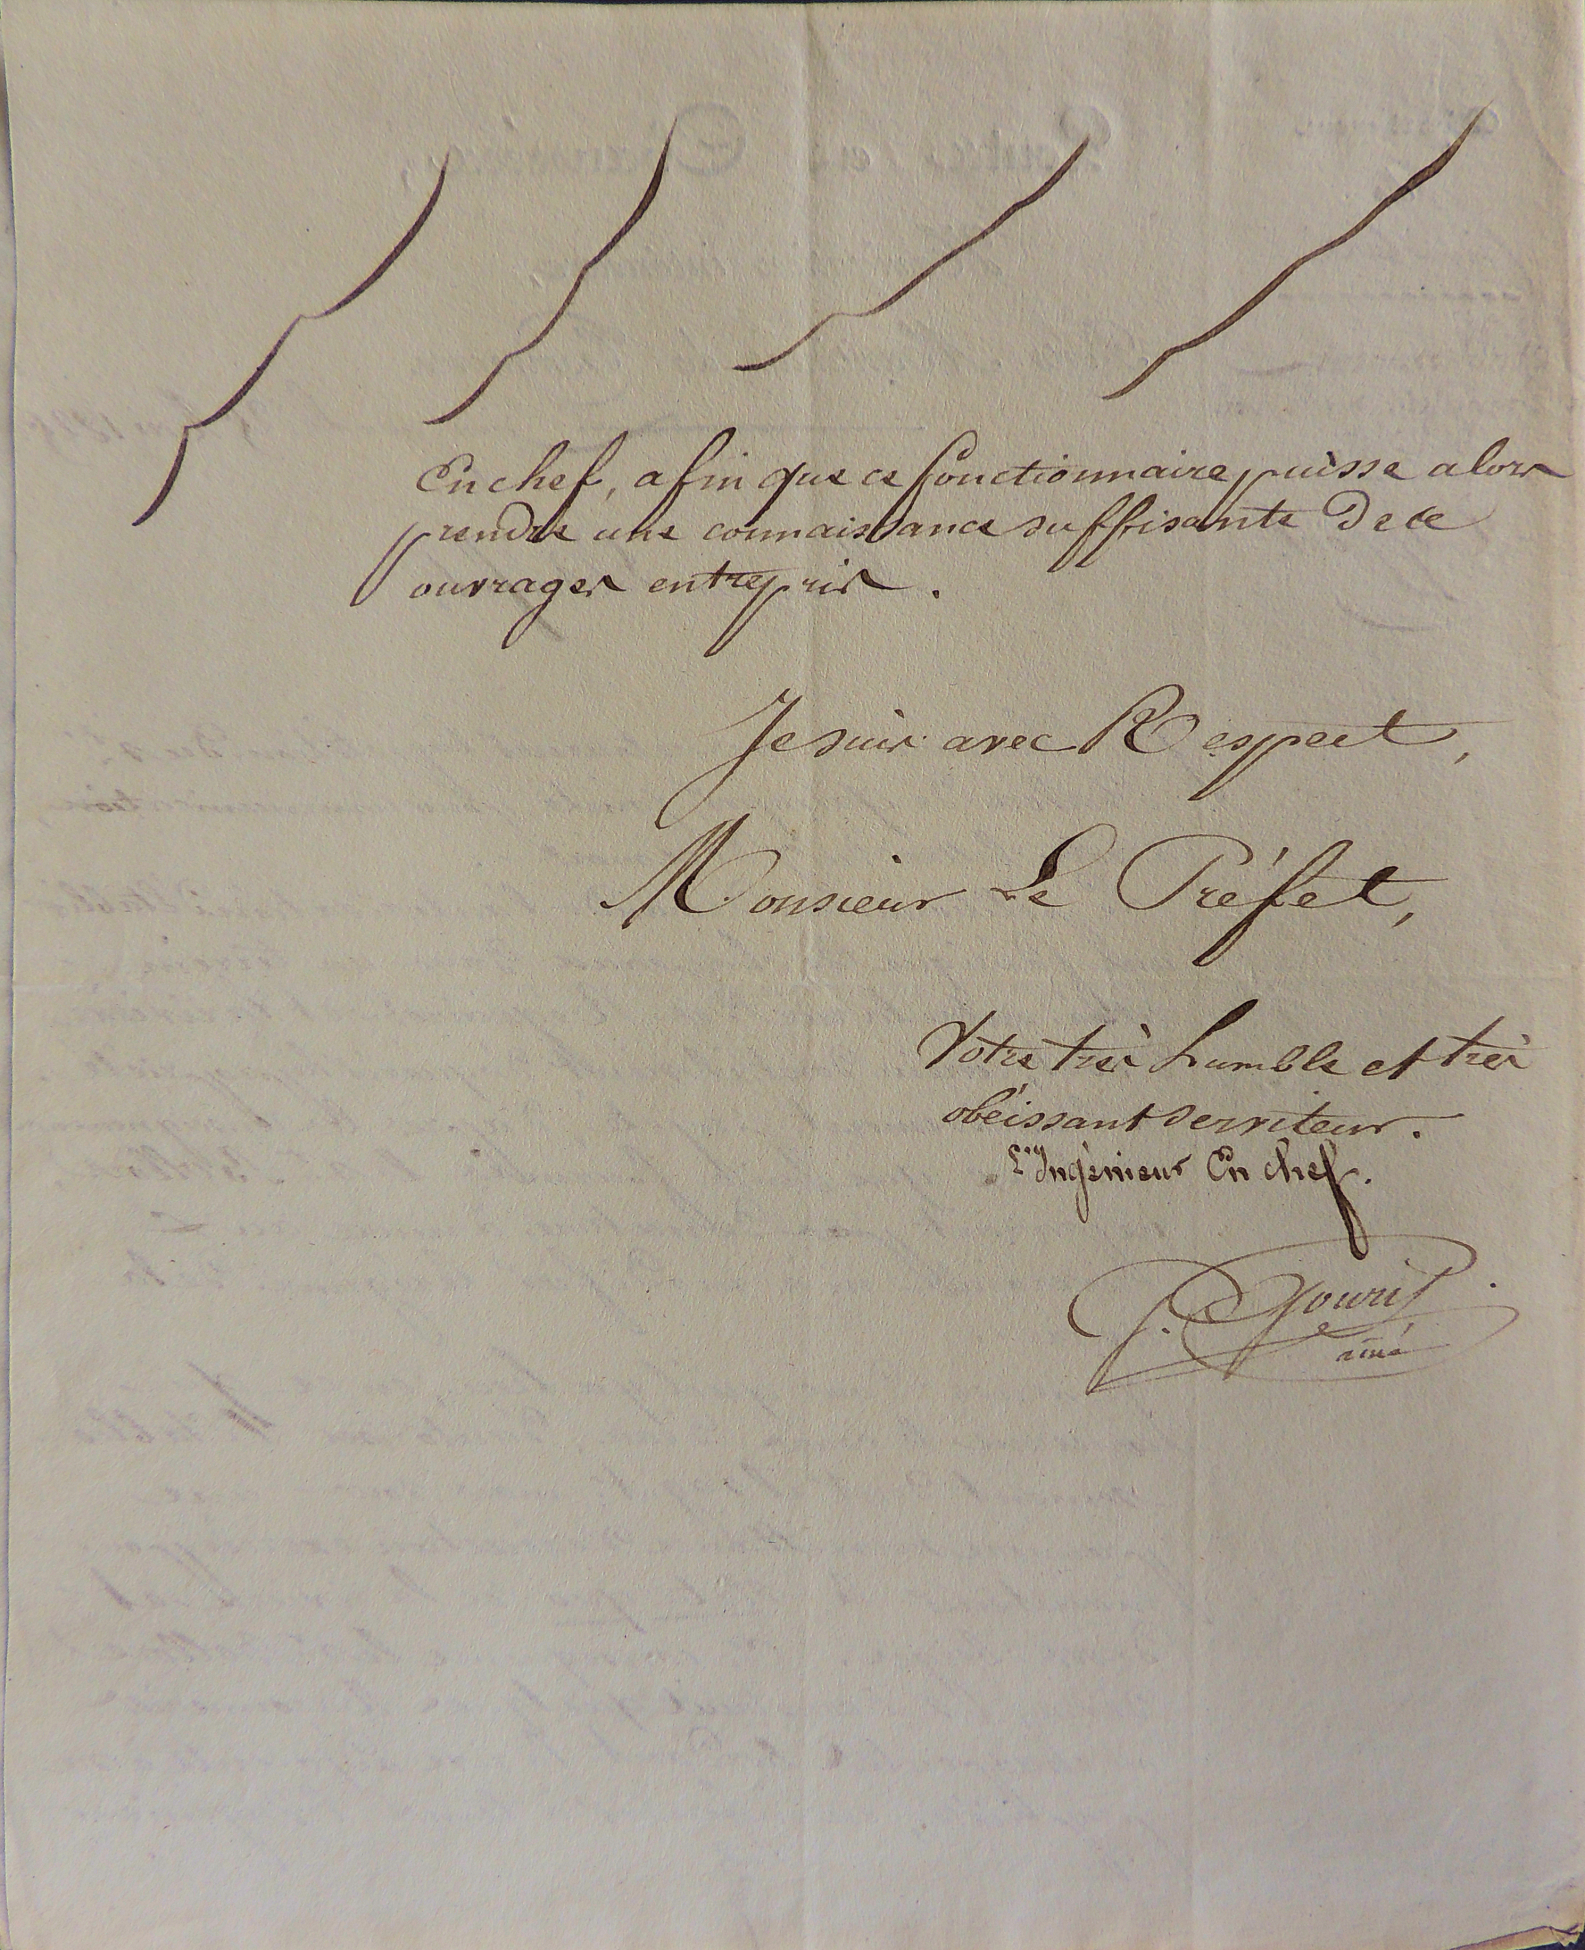 En chef, afin que ce fonctionnaire puisse alors
prendre une connaissance suffisante de ce
ouvrages entrepris.
Je suis avec Respect,
Monsieur Le Préfet,
Votre très humble et très
obéissant serviteur.
L'Ingénieur En chef.
P. Gourij
ainé